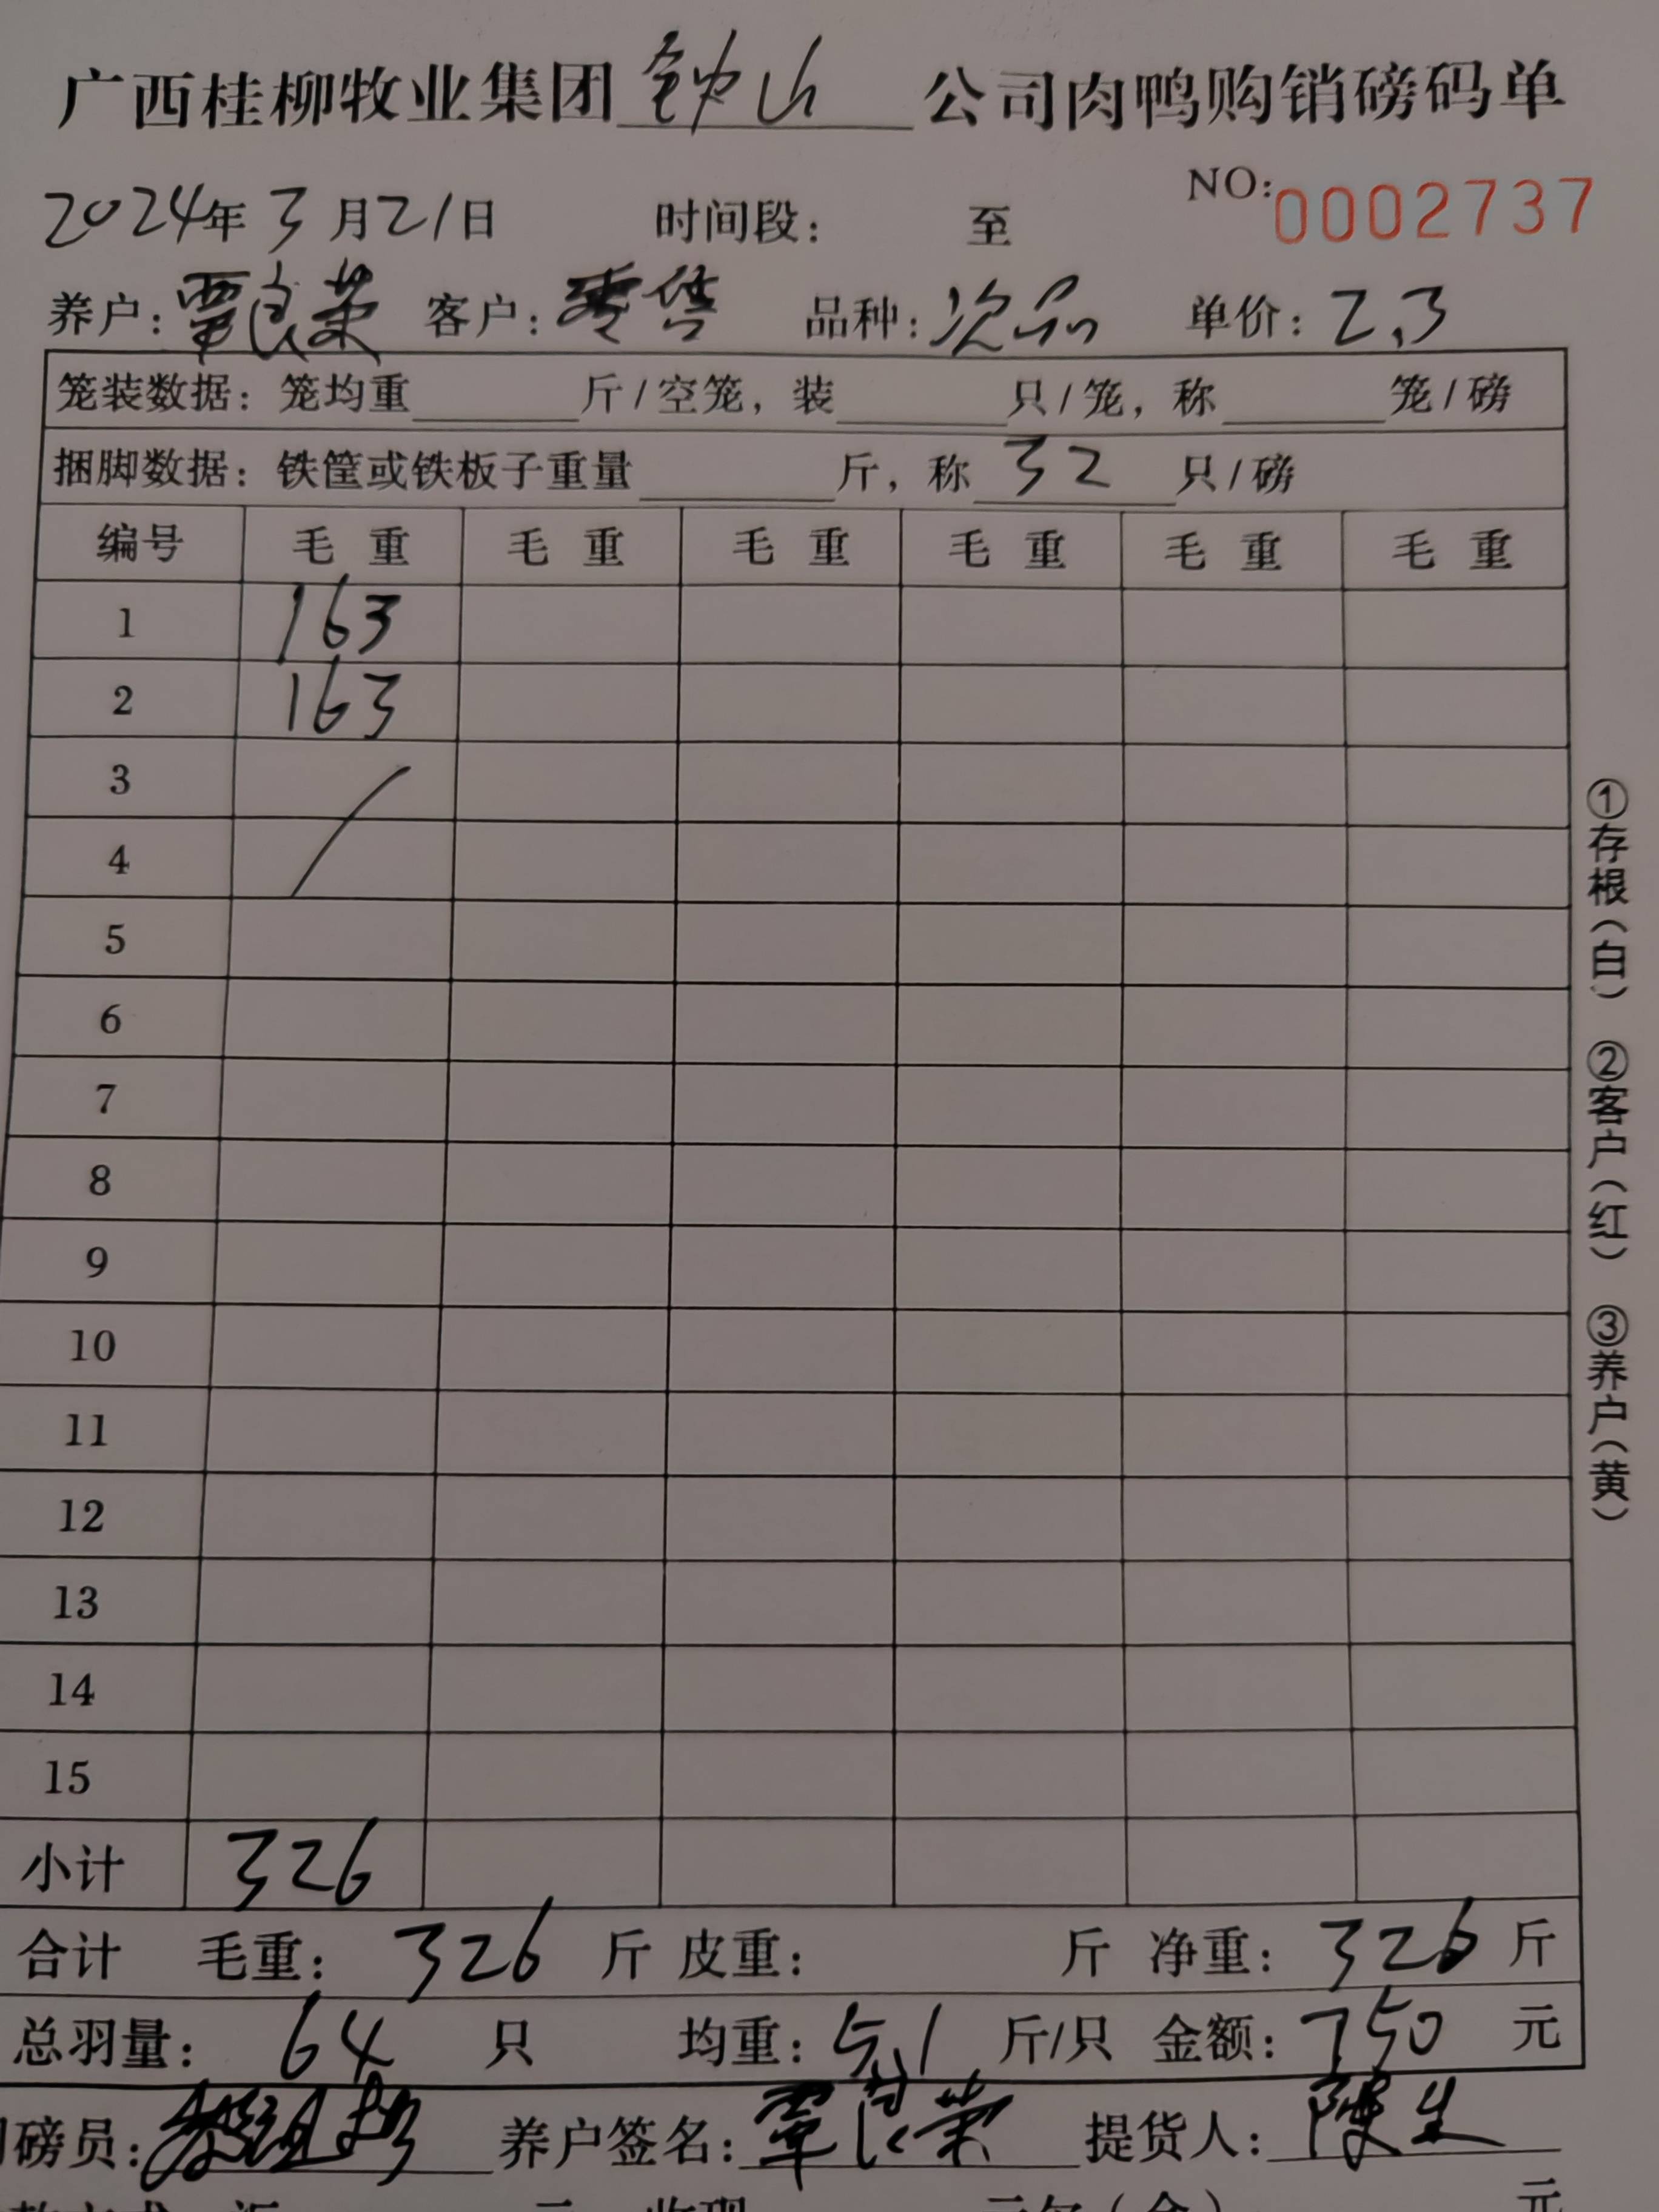 广西桂柳牧业集团 钟山 公司肉鸭购销磅码单
NO: 0002737
2024年 3 月 21 日 时间段: 至
养户: 覃良荣 客户: 零售 品种: 次品 单价: 2.3
笼装数据: 笼均重 斤/空笼, 装 只/笼, 称 笼/磅
捆脚数据: 铁筐或铁板子重量 斤, 称 32 只/磅
编号 毛重 毛重 毛重 毛重 毛重 毛重
1 163
2 163
3
4
5
6
7
8
9
10
11
12
13
14
15
小计 326
合计 毛重: 326 斤 皮重: 斤 净重: 326 斤
总羽量: 64 只 均重: 5.1 斤/只 金额: 750 元
磅员: 养户签名: 覃良荣 提货人: 陈生
元
①存根(白) ②客户(红) ③养户(黄)